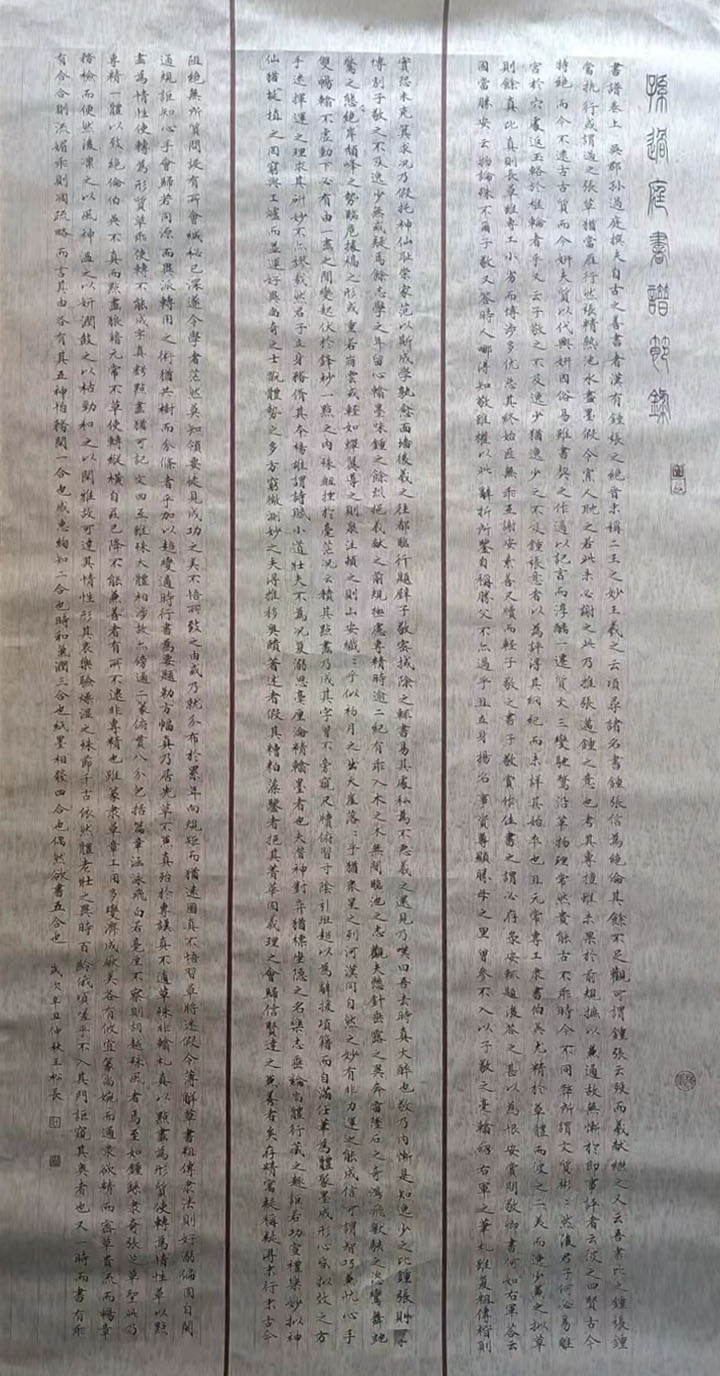 孫過庭書譜節錄
書譜卷上 吳郡孫過庭撰夫自古之善書者漢有鍾張之絕晉末稱二王之妙王羲之云頃尋諸名書鍾張信為絕倫其餘不足觀可謂鍾張云歿而羲獻繼之又云吾書比之鍾張鍾
當抗行或謂過之張草猶當雁行然張精熟池水盡墨假令寡人耽之若此未必謝之此乃推張邁鍾之意也考其專擅雖未果於前規摭以兼通故無慚於即事評者云彼之四賢古今
特絕而今不逮古古質而今妍夫質以代興妍因俗易雖書契之作適以記言而淳醨一遷質文三變馳騖沿革物理常然貴能古不乖時今不同弊所謂文質彬彬然後君子何必易雕
宮於穴處返玉輅於椎輪者乎又云子敬之不及逸少猶逸少之不及鍾張意者以為評得其綱紀而未詳其始卒也且元常專工隸書伯英尤精於草體而彼之二美而逸少兼之擬草
則餘真比真則長草雖專工小劣而博涉多優總其終始匪無乖互謝安素善尺牘而輕子敬之書子敬嘗作佳書之謂必存錄安輒題後答之甚以為恨安嘗問敬卿書何如右軍答云
固當勝安云物論殊不爾子敬又答時人哪得知敬雖權以此辭折所鑒自稱勝父不亦過乎且立身揚名事資尊顯勝母之里曾參不入以子敬之毫翰紹右軍之筆札雖復粗傳楷則
實恐未克箕裘況乃假託神仙恥崇家範以斯成學孰愈面牆後羲之往都臨行題壁子敬密拭除之輒書易其處私為不惡羲之還見乃嘆曰吾去時真大醉也敬乃內慚是知逸少之比鍾張則專
博別子敬之不及逸少無或疑焉餘志學之年留心翰墨味鍾之餘烈挹羲獻之前規極慮專精時逾二紀有乖入木之術無間臨池之志觀夫懸針垂露之異奔雷墜石之奇鴻飛獸駭之資鸞舞蛇
驚之態絕岸頹峰之勢臨危據槁之形或重若崩雲或輕如蟬翼導之則泉注頓之則山安纖纖乎似初月之出天崖落落乎猶眾星之列河漢同自然之妙有非力運之能成信可謂智巧兼優心手
雙暢翰不虛動下必有由一畫之間變起伏於鋒杪一點之內殊衄挫於毫芒況云積其點畫乃成其字曾不旁窺尺牘俯習寸陰引班超以為辭援項籍而自滿任筆為體聚墨成形心昏擬效之方
手迷揮運之理求其妍妙不亦謬哉然君子立身務脩其本楊雄謂詩賦小道壯夫不為況复溺思毫厘淪精翰墨者也夫潛神對弈猶標坐隱之名樂志垂綸尚體行藏之趣詎若功宣禮樂妙擬神
仙猶埏埴之罔窮與工爐而並運好異尚奇之士翫體勢之多方窮微測妙之夫得推移奧賾著述者假其糟粕藻鑒者挹其菁華固義理之會歸信賢達之兼善者矣存精寓疑稱疑得末行末古今
阻絕無所質問設有所會緘秘已深遂令學者茫然莫知領要徒見成功之美不悟所致之由或乃就分布於累年向規矩而猶遠圖真不悟習草將迷假令薄解草書粗傳隸法則好溺偏固自閡
通規詎知心手會歸若同源而異派轉用之術猶共樹而分條者乎加以趨變適時行書為要題勒方幅真乃居先草不兼真殆於專謹真不通草殊非翰札真以點畫為形質使轉為情性草以點
畫為情性使轉為形質草乖使轉不能成字真虧點畫猶可記文回互雖殊大體相涉故亦傍通二篆俯貫八分包括篇章涵泳飛白若毫釐不察則胡越殊風者焉至如鍾繇隸奇張芝草聖此乃
專精一體以致絕倫伯英不真而點畫狼藉元常不草使轉縱橫自茲已降不能兼善者有所不逮非專精也雖篆隸草章工用多變濟成厥美各有攸宜篆尚婉而通隸欲精而密草貴流而暢章
務檢而便然後凜之以風神溫之以妍潤鼓之以枯勁和之以閑雅故可達其情性形其哀樂驗燥濕之殊節千古依然體老壯之異時百齡俄頃嗟乎不入其門詎窺其奧者也又一時而書有乖
有合合則流媚乖則凋疏略而言其由各有其五神怡務閑一合也感惠徇知二合也時和氣潤三合也紙墨相發四合也偶然欲書五合也 歲次辛丑仲秋王松長